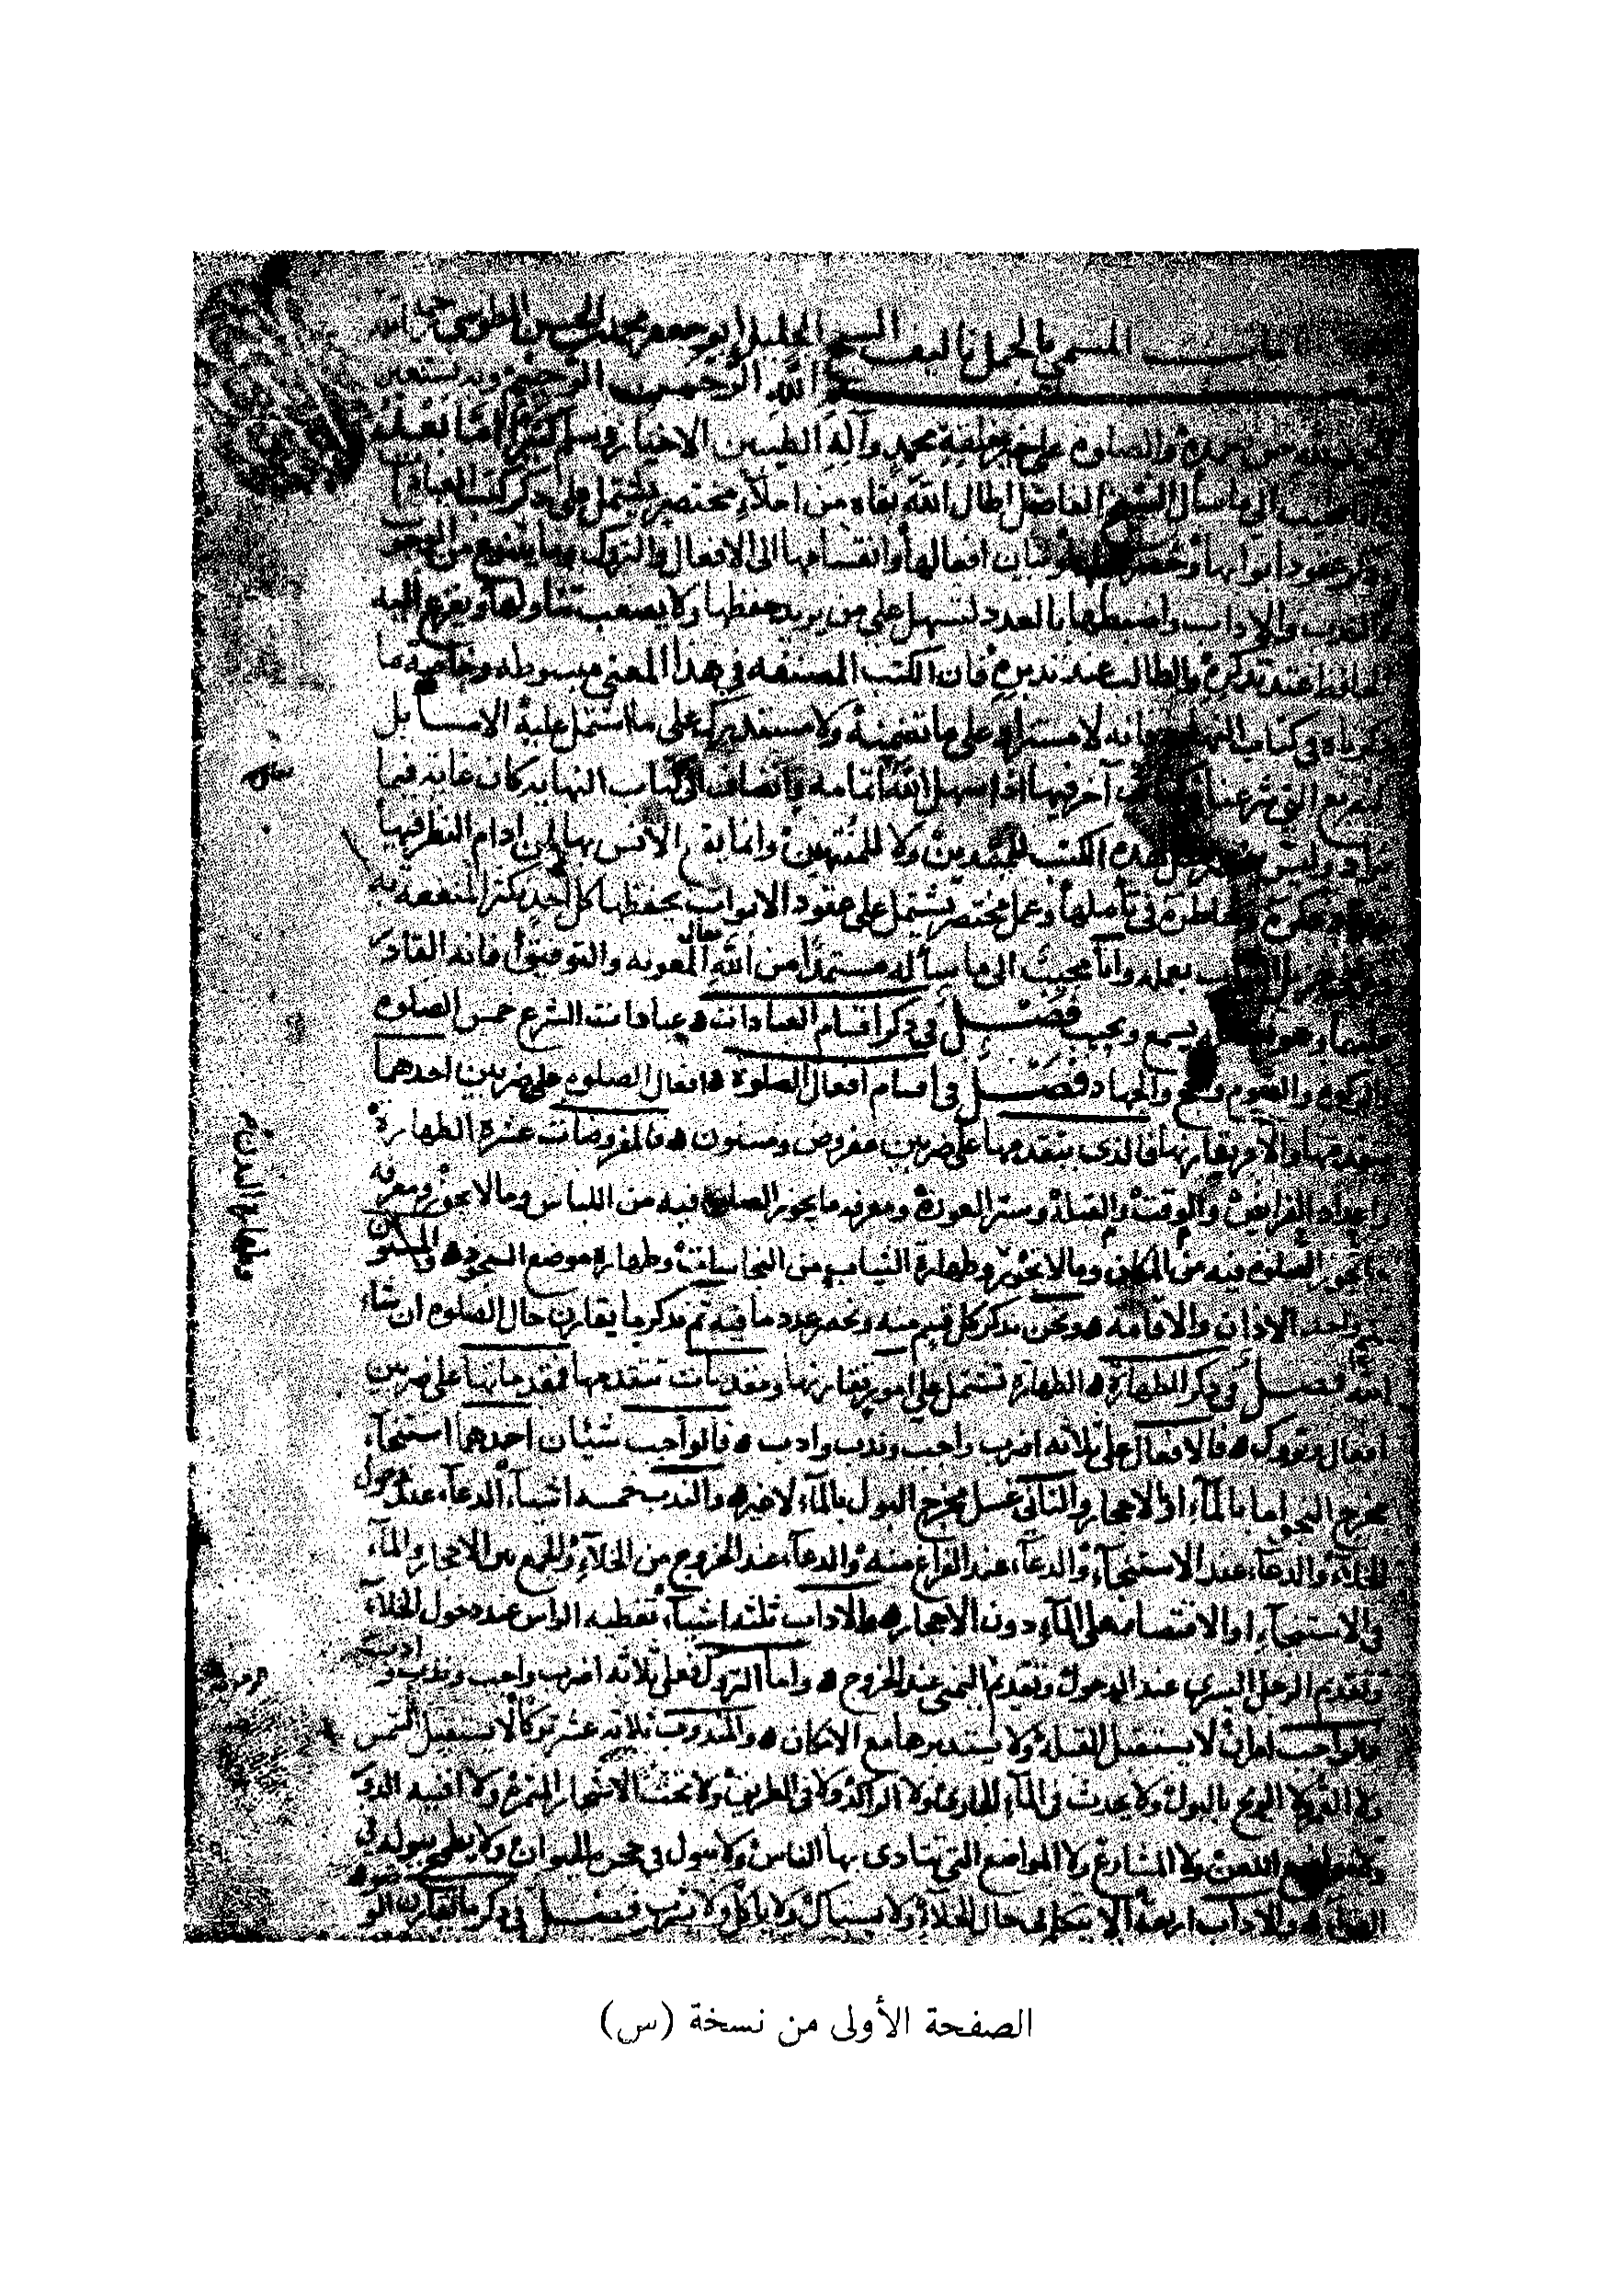 كتاب المسمى بالجمل تاليف الشيخ الجليل ابو جعفر محمد بن الحسن الطوسي
بسم الله الرحمن الرحيم وبه نستعين
حمده والصلوة على خير خلقه محمد وآله الطيبين الاخيار وسلم كثيرا اما بعد فانه
مجيب الى ما سأل الشيخ الفاضل اطال الله بقاه من املاء مختصر يشتمل على ذكر كتب العبادات
وذكر عقود ابوابها وحصر وبيان افعالها وانقسامها الى الافعال والتروك وما يتنوع من الوجوب
والندب والاداب واضبطها بالعدد لتسهل على من يريد حفظها ولا يصعب تناولها ويفزع اليه
الحافظ عند تذكره والطالب عند تدبره فان الكتب المصنفة في هذا المعنى مبسوطة وخاصة ما
ذكرناه في كتاب النهاية فانه لا مستزاد على ما تضمنه ولا مستدرك على ما اشتمل عليه الا مسائل
التفريع التي شرعنا في كتاب آخر فيها اذا سهل الله اتمامه وانضاف الى كتاب النهاية كان غاية فيما
يراد وليس هذه الكتب للمبتدين ولا للمنتهين وانما يقع الانس بها لمن ادام النظر فيها
وخاطره في تأملها وعمل مختصر يشتمل على عقود الابواب يحفظها كل احد يكثر المنفعة به
بعمله وانا مجيب الى ما سأله مستمدا من الله تعالى المعونة والتوفيق فانه القادر
عليهما وهو يسمع ويجيب فصل في ذكر اقسام العبادات عبادات الشرع خمس الصلوة
والزكوة والصوم والحج والجهاد فصل في اقسام افعال الصلوة افعال الصلوة على ضربين احدهما
يتقدمها والآخر يقارنها فالذي يتقدمها على ضربين مفروض ومسنون فالمفروضات عشرة الطهارة
واعداد الفرايض والوقت والقبلة وستر العورة ومعرفة ما يجوز الصلوة فيه من اللباس وما لا يجوز ومعرفة
ما يجوز الصلوة فيه من المكان وما لا يجوز وطهارة الثياب من النجاسات وطهارة موضع السجود والمسنون
واحد الاذان والاقامة ونحن نذكر كل قسم منه ونحصر عدد ما فيه ثم نذكر ما يقارن حال الصلوة ان شاء
الله فصل في ذكر الطهارة الطهارة تشتمل على امور تقارنها ومقدمات تتقدمها فمقدماتها على ضربين
افعال وتروك فالافعال على ثلاثة اضرب واجب وندب وادب فالواجب شيئان احدهما استنجاء
مخرج النجو اما بالماء او الاحجار والثاني غسل مخرج البول بالماء لا غير والندب خمسة اشياء الدعاء عند دخول
الخلاء والدعاء عند الاستنجاء والدعاء عند الفراغ منه والدعاء عند الخروج من الخلاء والجمع بين الاحجار والماء
في الاستنجاء او الاقتصار على الماء دون الاحجار والاداب ثلثة اشياء تغطية الراس عند دخول الخلاء
وتقديم الرجل اليسرى عند الدخول وتقديم اليمنى عند الخروج واما التروك فعلى ثلاثة اضرب واجب وندب وادب
فالواجب امران لا يستقبل القبلة ولا يستدبرها مع الامكان والمندوب ثلاثة عشر تركا لا يستقبل الشمس
ولا القمر ولا الريح بالبول ولا يحدث في الماء الجاري ولا الراكد ولا في الطريق ولا تحت الاشجار المثمرة ولا افنية الدور
ولا مواضع اللعن ولا المشارع ولا المواضع التي يتاذى بها الناس ولا يبول في جحرة الحيوان ولا يطمح ببوله في
الهواء والاداب اربعة الا يتكلم في حال الخلاء ولا يستاك ولا ياكل ولا يشرب فصل في ذكر ما يقارن الوضوء
وطهارة البدن
الصفحة الأولى من نسخة (س)